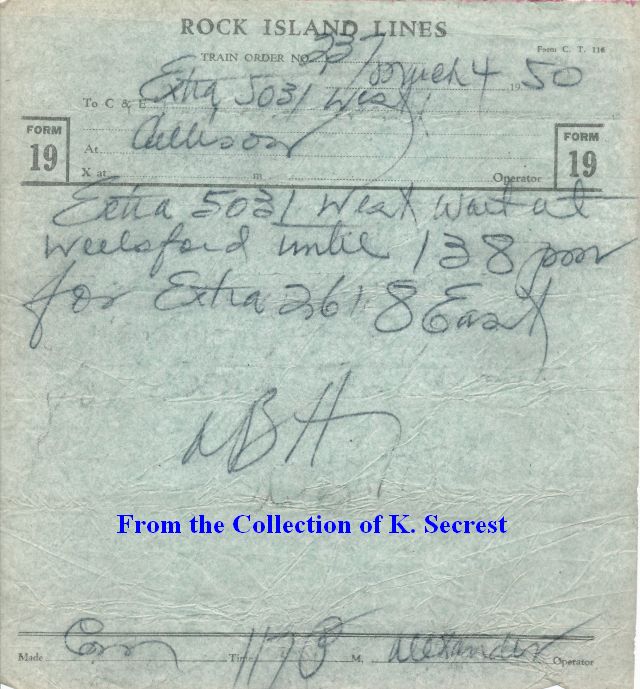 ROCK ISLAND LINES
Form C. T. 116
TRAIN ORDER NO. 237 March 4 1950
To C & E Extra 5031 West
At Allison
X at m Operator
FORM 19
FORM 19
Extra 5031 West wait at
Wellsford until 138 pm
for Extra 2618 East
From the Collection of K. Secrest
Made Com Time M. Alexander Operator